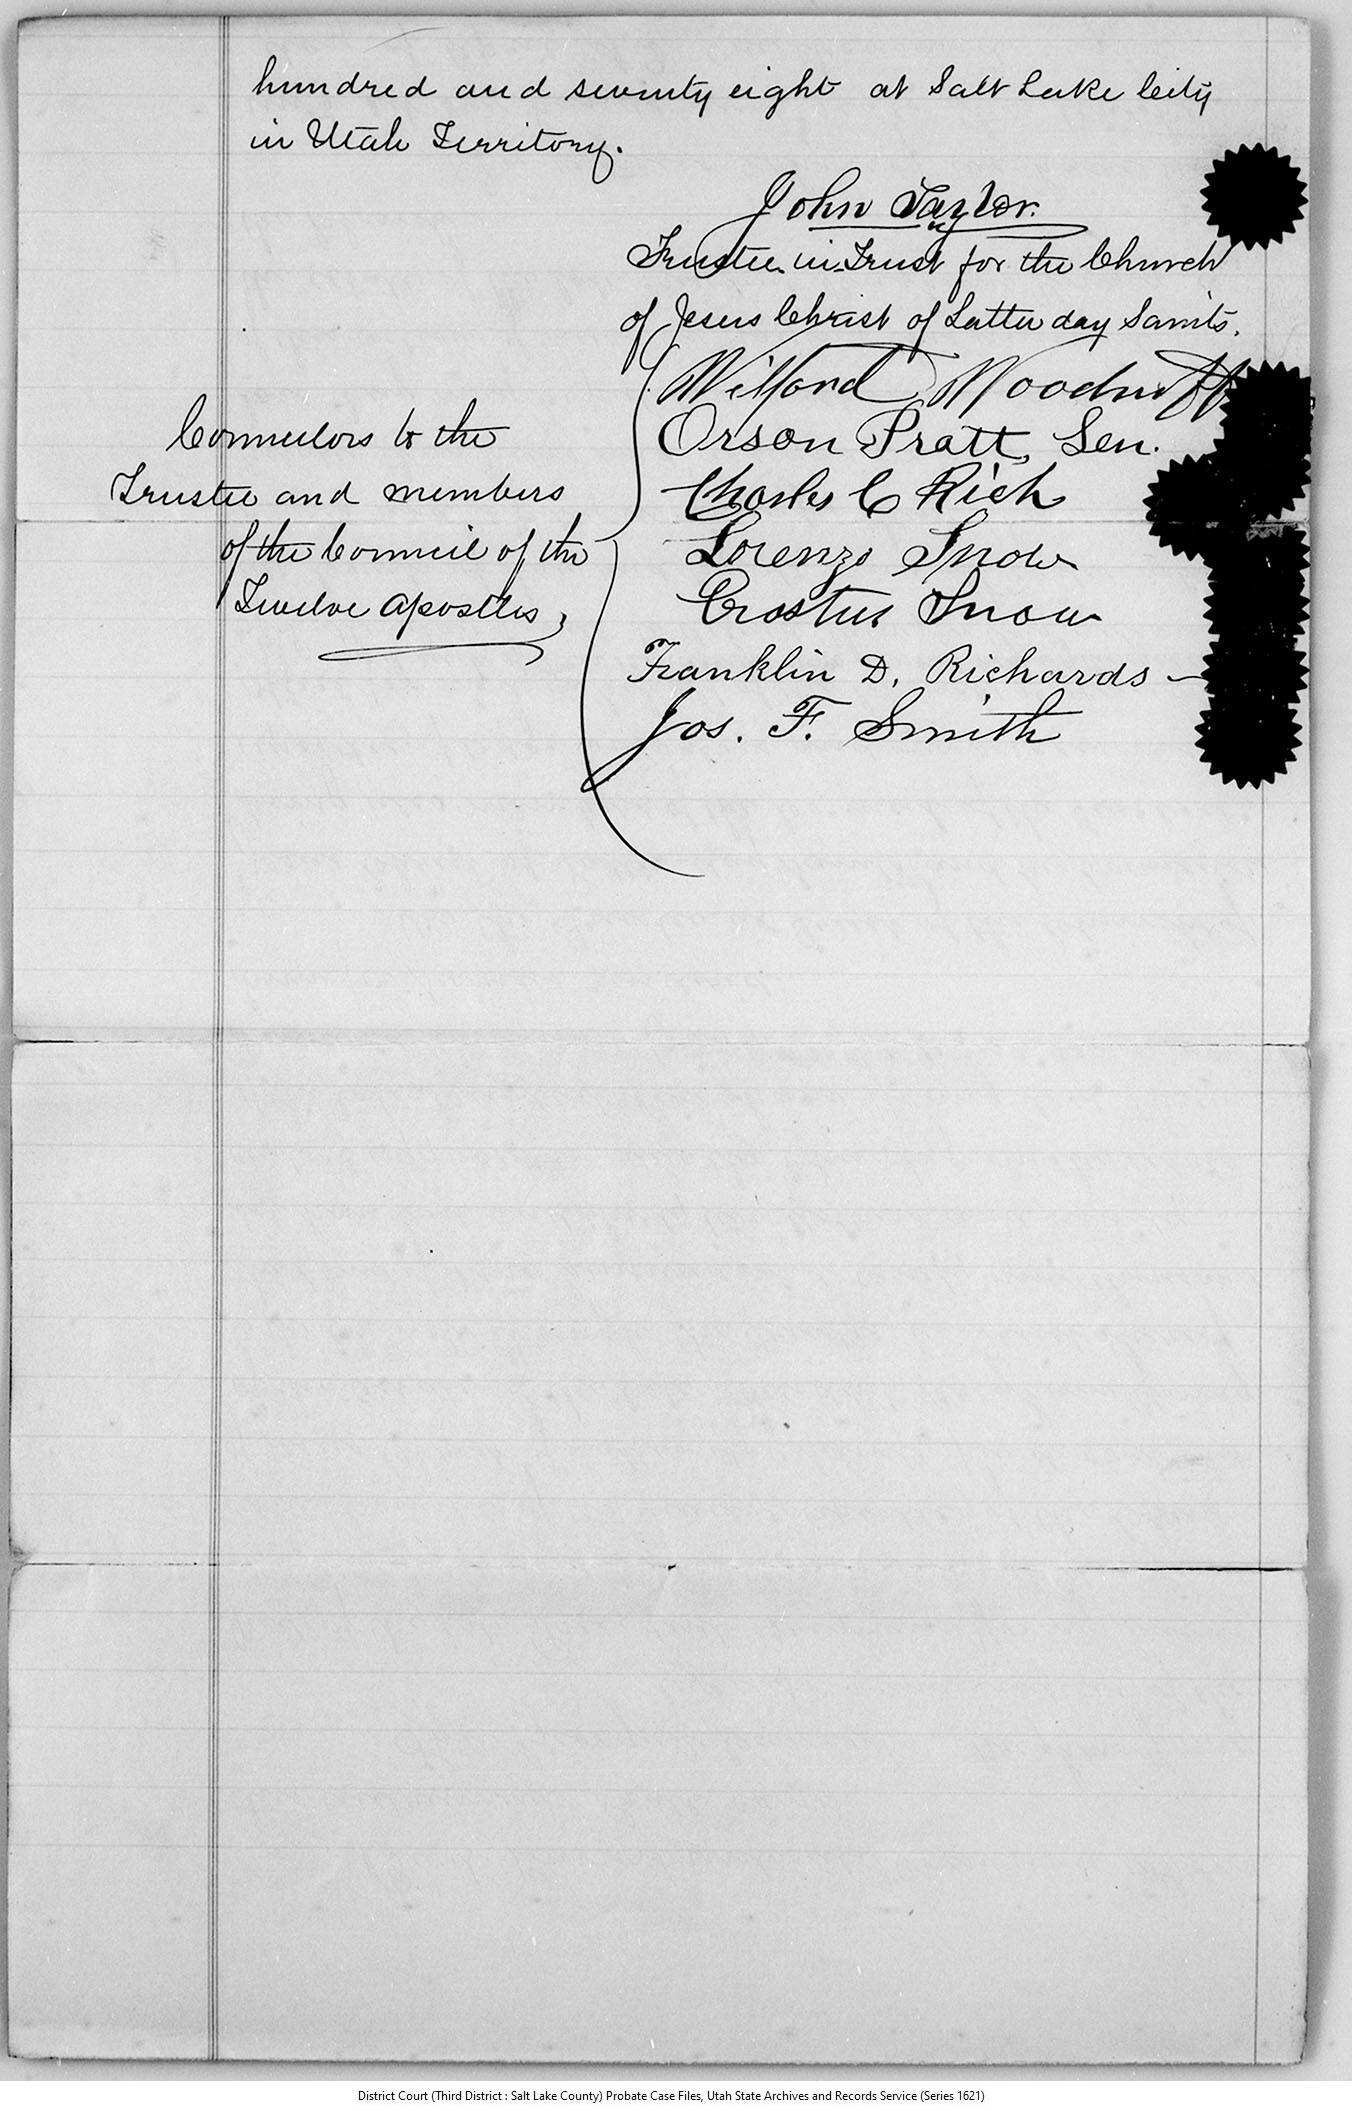 hundred and seventy eight at Salt Lake City
in Utah Territory.
John Taylor.
Trustee-in-Trust for the Church
of Jesus Christ of Latter day Saints.
Councilors to the
Trustee and members
of the Council of the
Twelve Apostles,
Wilford Woodruff
Orson Pratt, Sen.
Charles C Rich
Lorenzo Snow
Erastus Snow
Franklin D. Richards —
Jos. F. Smith
District Court (Third District : Salt Lake County) Probate Case Files, Utah State Archives and Records Service (Series 1621)